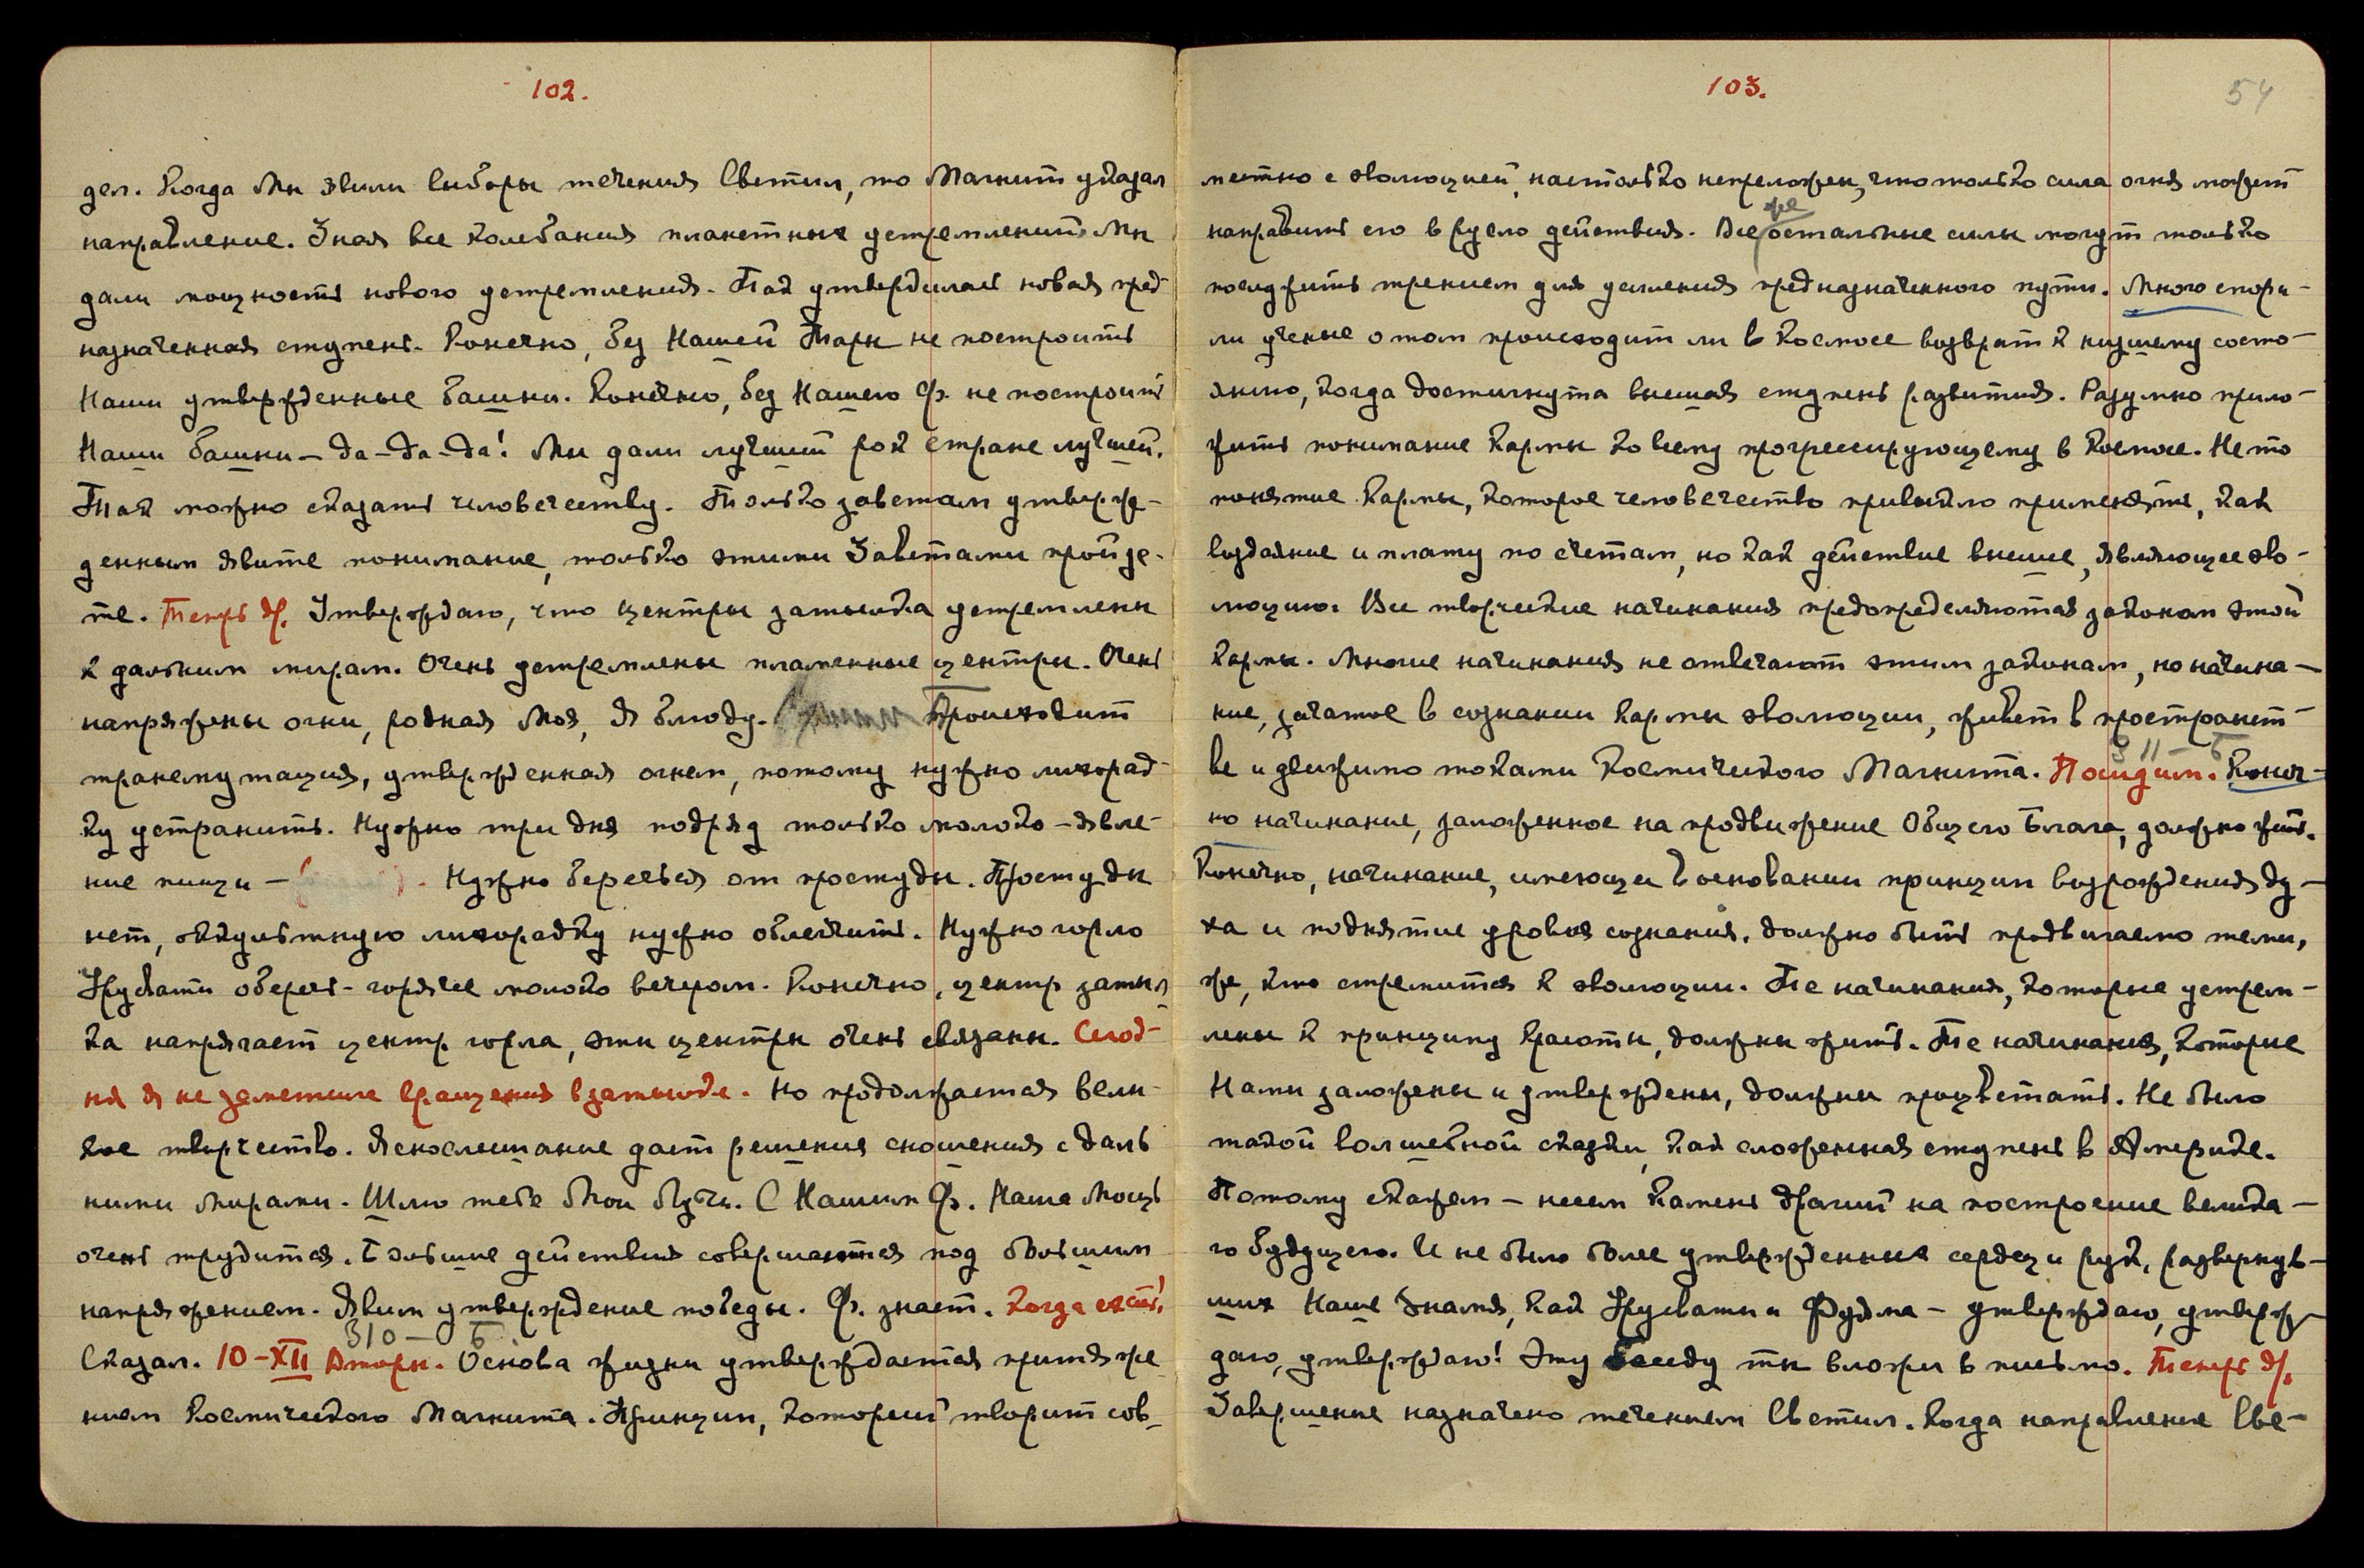 102.
дел. Когда Мы явили выборы течения Светил, то Магнит указал
направление. Зная все колебания планетных устремлений, Мы
дали мощность нового устремления. Так утвердилась новая пред-
назначенная ступень. Конечно, без Нашей Тары не построить
Наши утвержденные башни. Конечно, без Нашего Ф. не построить
Наши башни – да-да-да! Мы дали лучший рок стране лучшей.
Так можно сказать человечеству. Только заветам утверж-
денным явите понимание, только этими Заветами пройде-
те. Теперь др. Утверждаю, что центры затылка устремлены
к дальним мирам. Очень устремлены пламенные центры. Очень
напряжены огни, родная Моя, Я блюду. Происходит
трансмутация, утвержденная огнем, потому нужно лихорад-
ку устранить. Нужно три дня подряд только молоко – явле-
ние пищи – . Нужно беречься от простуды. Простуды
нет, оккультную лихорадку нужно облегчить. Нужно горло
Урусвати оберечь – горячее молоко вечером. Конечно, центр затыл-
ка напрягает центр горла, эти центры очень связаны. Сегод-
ня я не заметила вращения в затылке. Но продолжается вели-
кое творчество. Яснослышание дает решения сношения с даль
ними мирами. Шлю тебе Мои Лучи. С Нашим Ф. Наша Мощь
очень трудится. Большие действия совершаются под большим
напряжением. Явим утверждение победы. Ф. знает. Когда ехать?
310 – Б
Сказал. 10-XII Вторн. Основа жизни утверждается притяже
нием Космического Магнита. Принцип, который творит сов-
103.
54
местно с эволюцией, настолько непреложен, что только сила огня может
же
направить его в русло действия. Все остальные силы могут только
послужить трением для усиления предназначенного пути. Много спори-
ли ученые о том происходит ли в Космосе возврат к низшему состо-
янию, когда достигнута высшая ступень развития. Разумно прило-
жить понимание Кармы ко всему прогрессирующему в Космосе. Не то
понятие Кармы, которое человечество привыкло применять, как
воздаяние и плату по счетам, но как действие высшее, являющее эво-
люцию. Все творческие начинания предопределяются законом этой
Кармы. Многие начинания не отвечают этим законам, но начина-
ние, зачатое в сознании Кармы эволюции, живет в пространст-
311 – Б
ве и движимо токами Космического Магнита. Посидим. Конеч-
но начинание, заложенное на продвижение Общего Блага, должно жить.
Конечно, начинание, имеющее в основании принцип возрождения ду-
ха и поднятие уровня сознания, должно быть продвигаемо теми,
же, кто стремится к эволюции. Те начинания, которые устрем-
лены к принципу Красоты, должны жить. Те начинания, которые
Нами заложены и утверждены, должны процветать. Не было
такой волшебной сказки, как сложенная ступень в Америке.
Потому скажем – несем Камень Драгий на построение велика-
го будущего. И не было более утвержденных сердец и рук, развернув-
ших Наше Знамя, как Урусвати и Фуяма – утверждаю, утверж-
даю, утверждаю! Эту Беседу ты вложи в письмо. Теперь др.
Завершение назначено течением Светил. Когда направление Све-